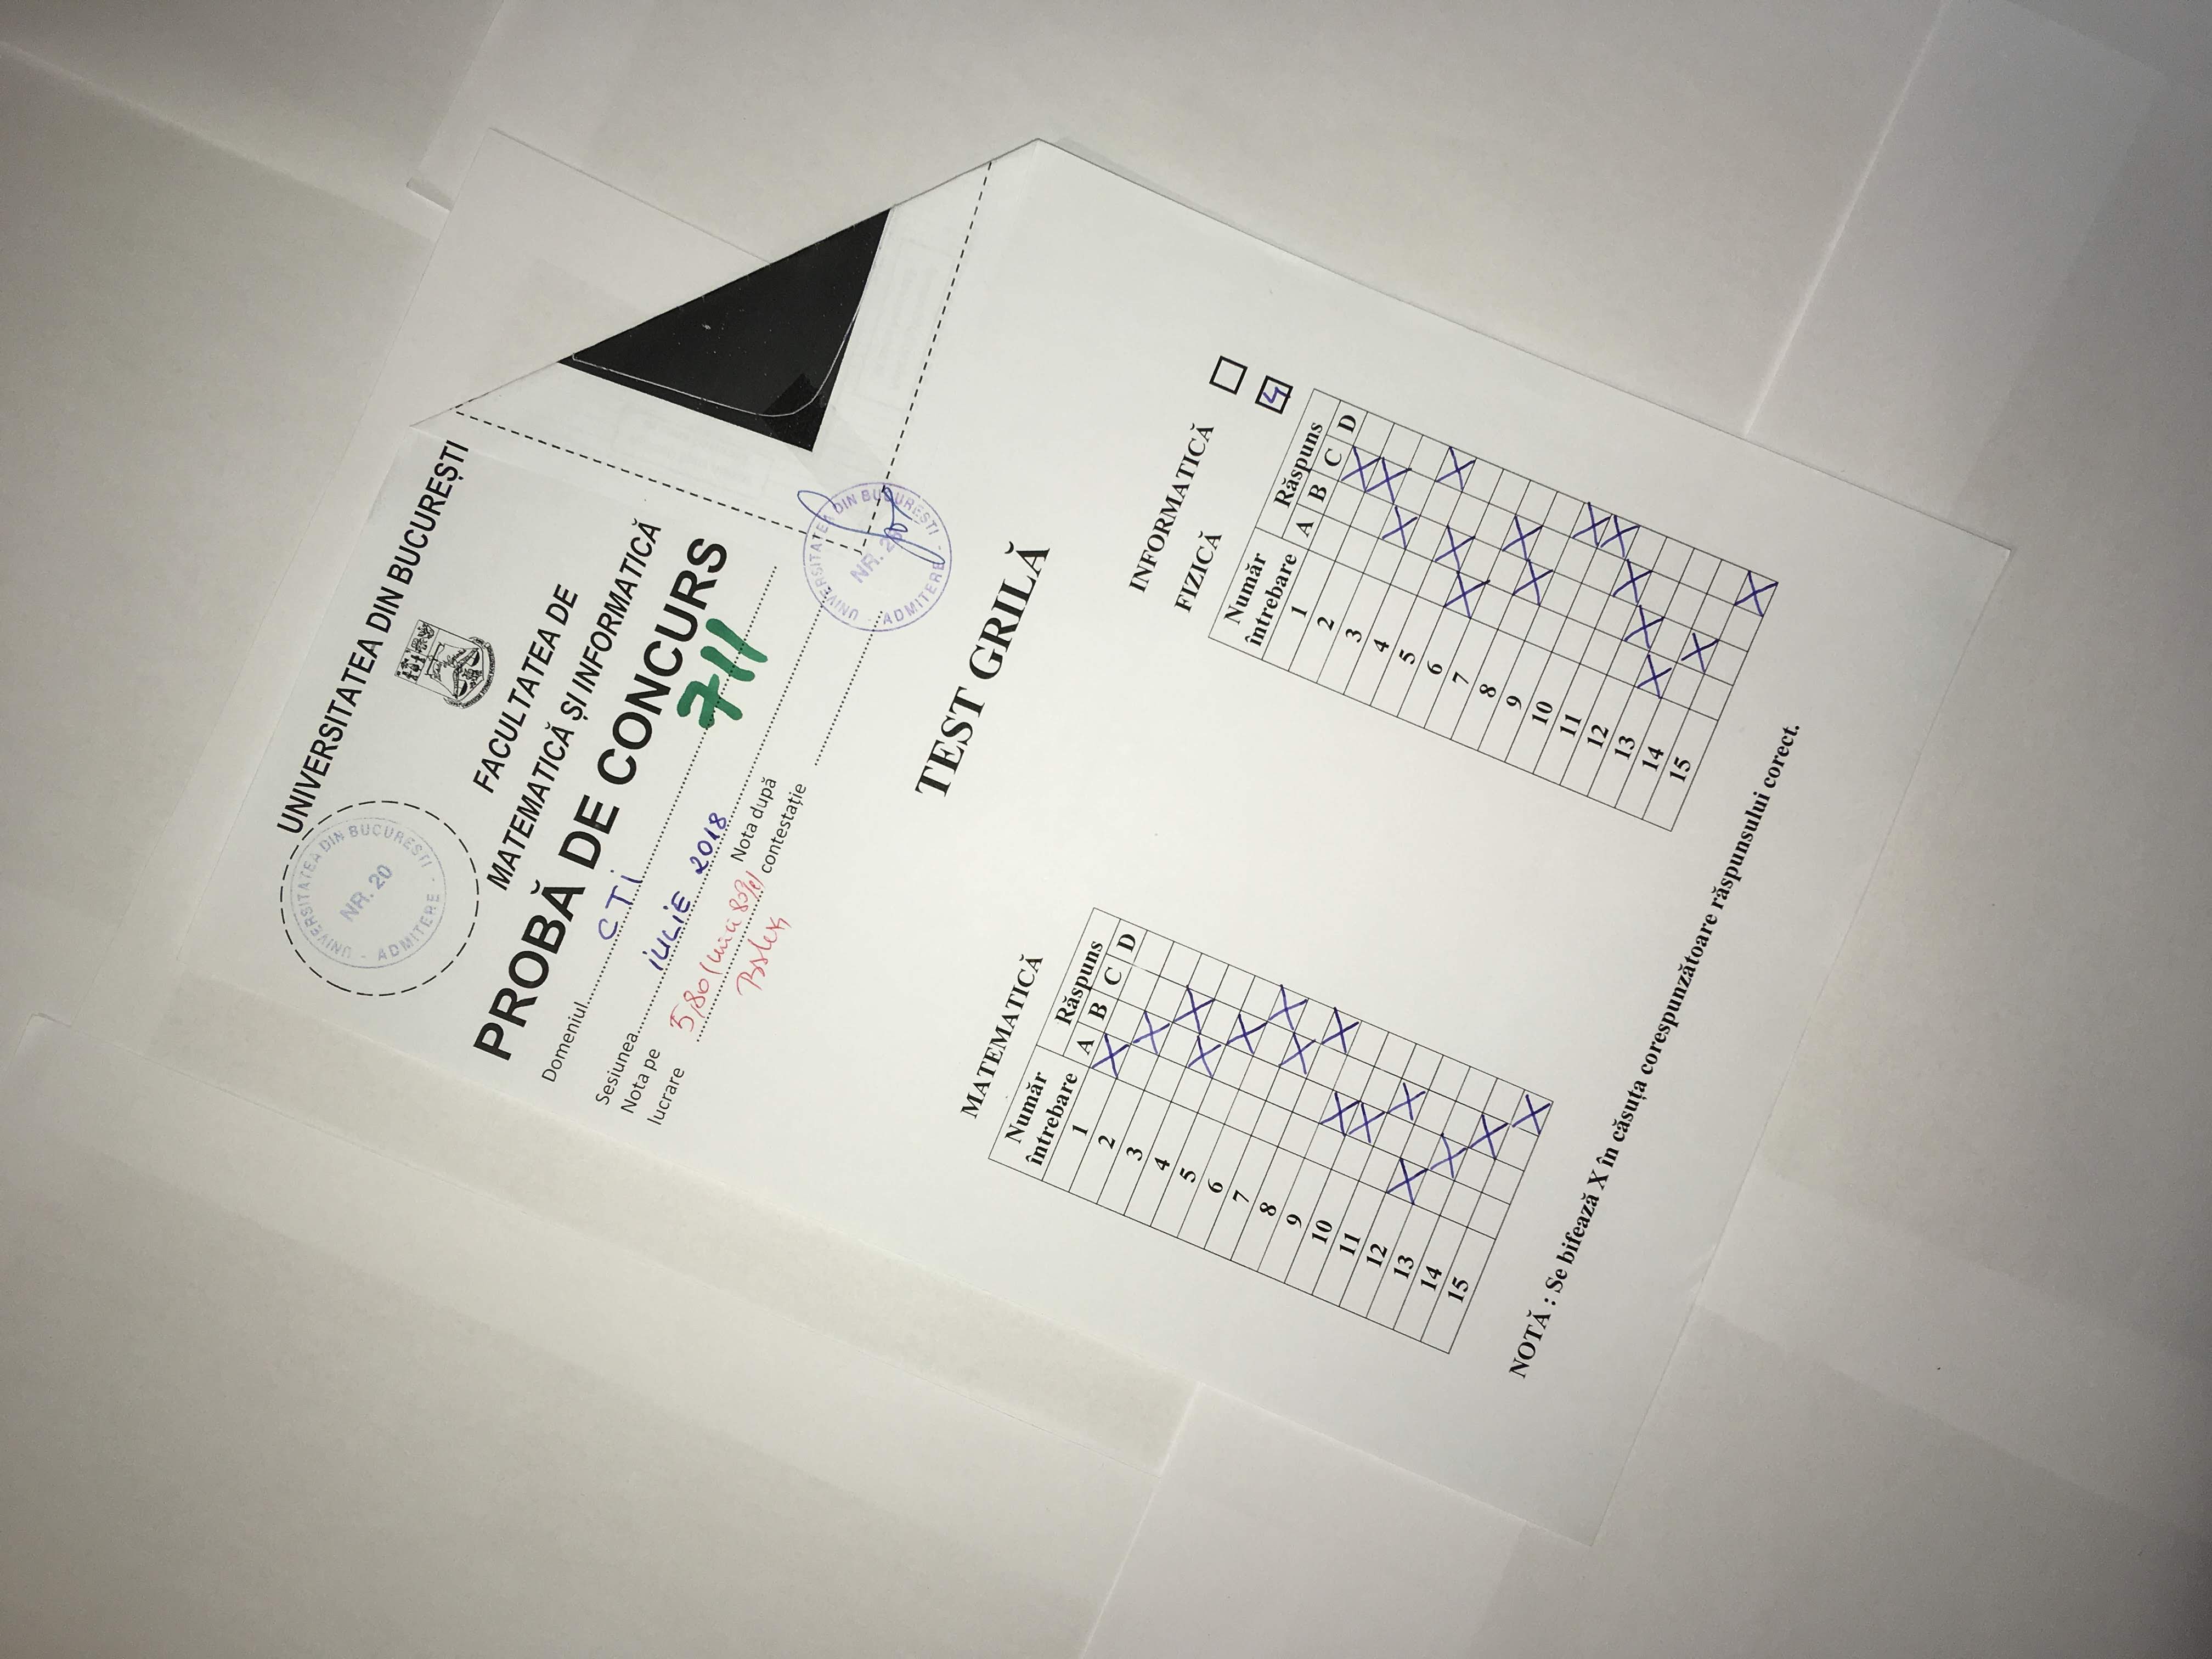 UNIVERSITATEA DIN BUCUREȘTI
UNIVERSITATEA DIN BUCUREȘTI - ADMITERE -
NR. 20
FACULTATEA DE
MATEMATICĂ ȘI INFORMATICĂ
PROBĂ DE CONCURS
Domeniul CTi
711
Sesiunea iULiE 2018
Nota pe lucrare 5,80
Nota după contestație
UNIVERSITATEA DIN BUCUREȘTI - ADMITERE -
NR. 20
TEST GRILĂ
MATEMATICĂ
Număr întrebare Răspuns
A B C D
1 X
2 X
3 X
4 X
5 X
6 X
7 X
8 X
9 X
10 X
11 X
12 X
13 X
14 X
15 X
INFORMATICĂ
FIZICĂ
Număr întrebare Răspuns
A B C D
1 X
2 X
3 X
4 X
5 X
6 X
7 X
8 X
9 X
10 X
11 X
12 X
13 X
14 X
15 X
NOTĂ : Se bifează X în căsuța corespunzătoare răspunsului corect.